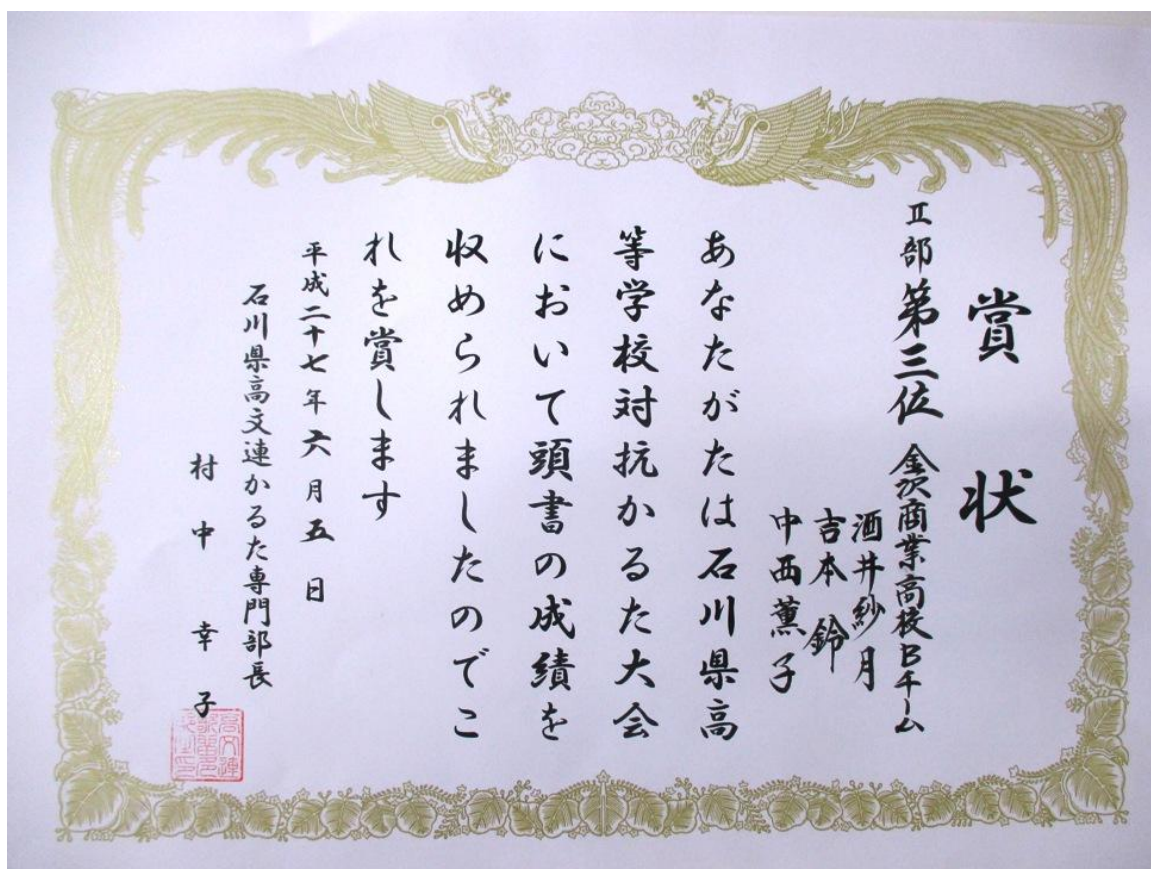 賞状
Ⅱ部 第三位 金沢商業高校Bチーム
酒井紗月
吉本 鈴
中西薫子
あなたがたは石川県高
等学校対抗かるた大会
において頭書の成績を
収められましたのでこ
れを賞します
平成二十七年六月五日
石川県高文連かるた専門部長
村中幸子